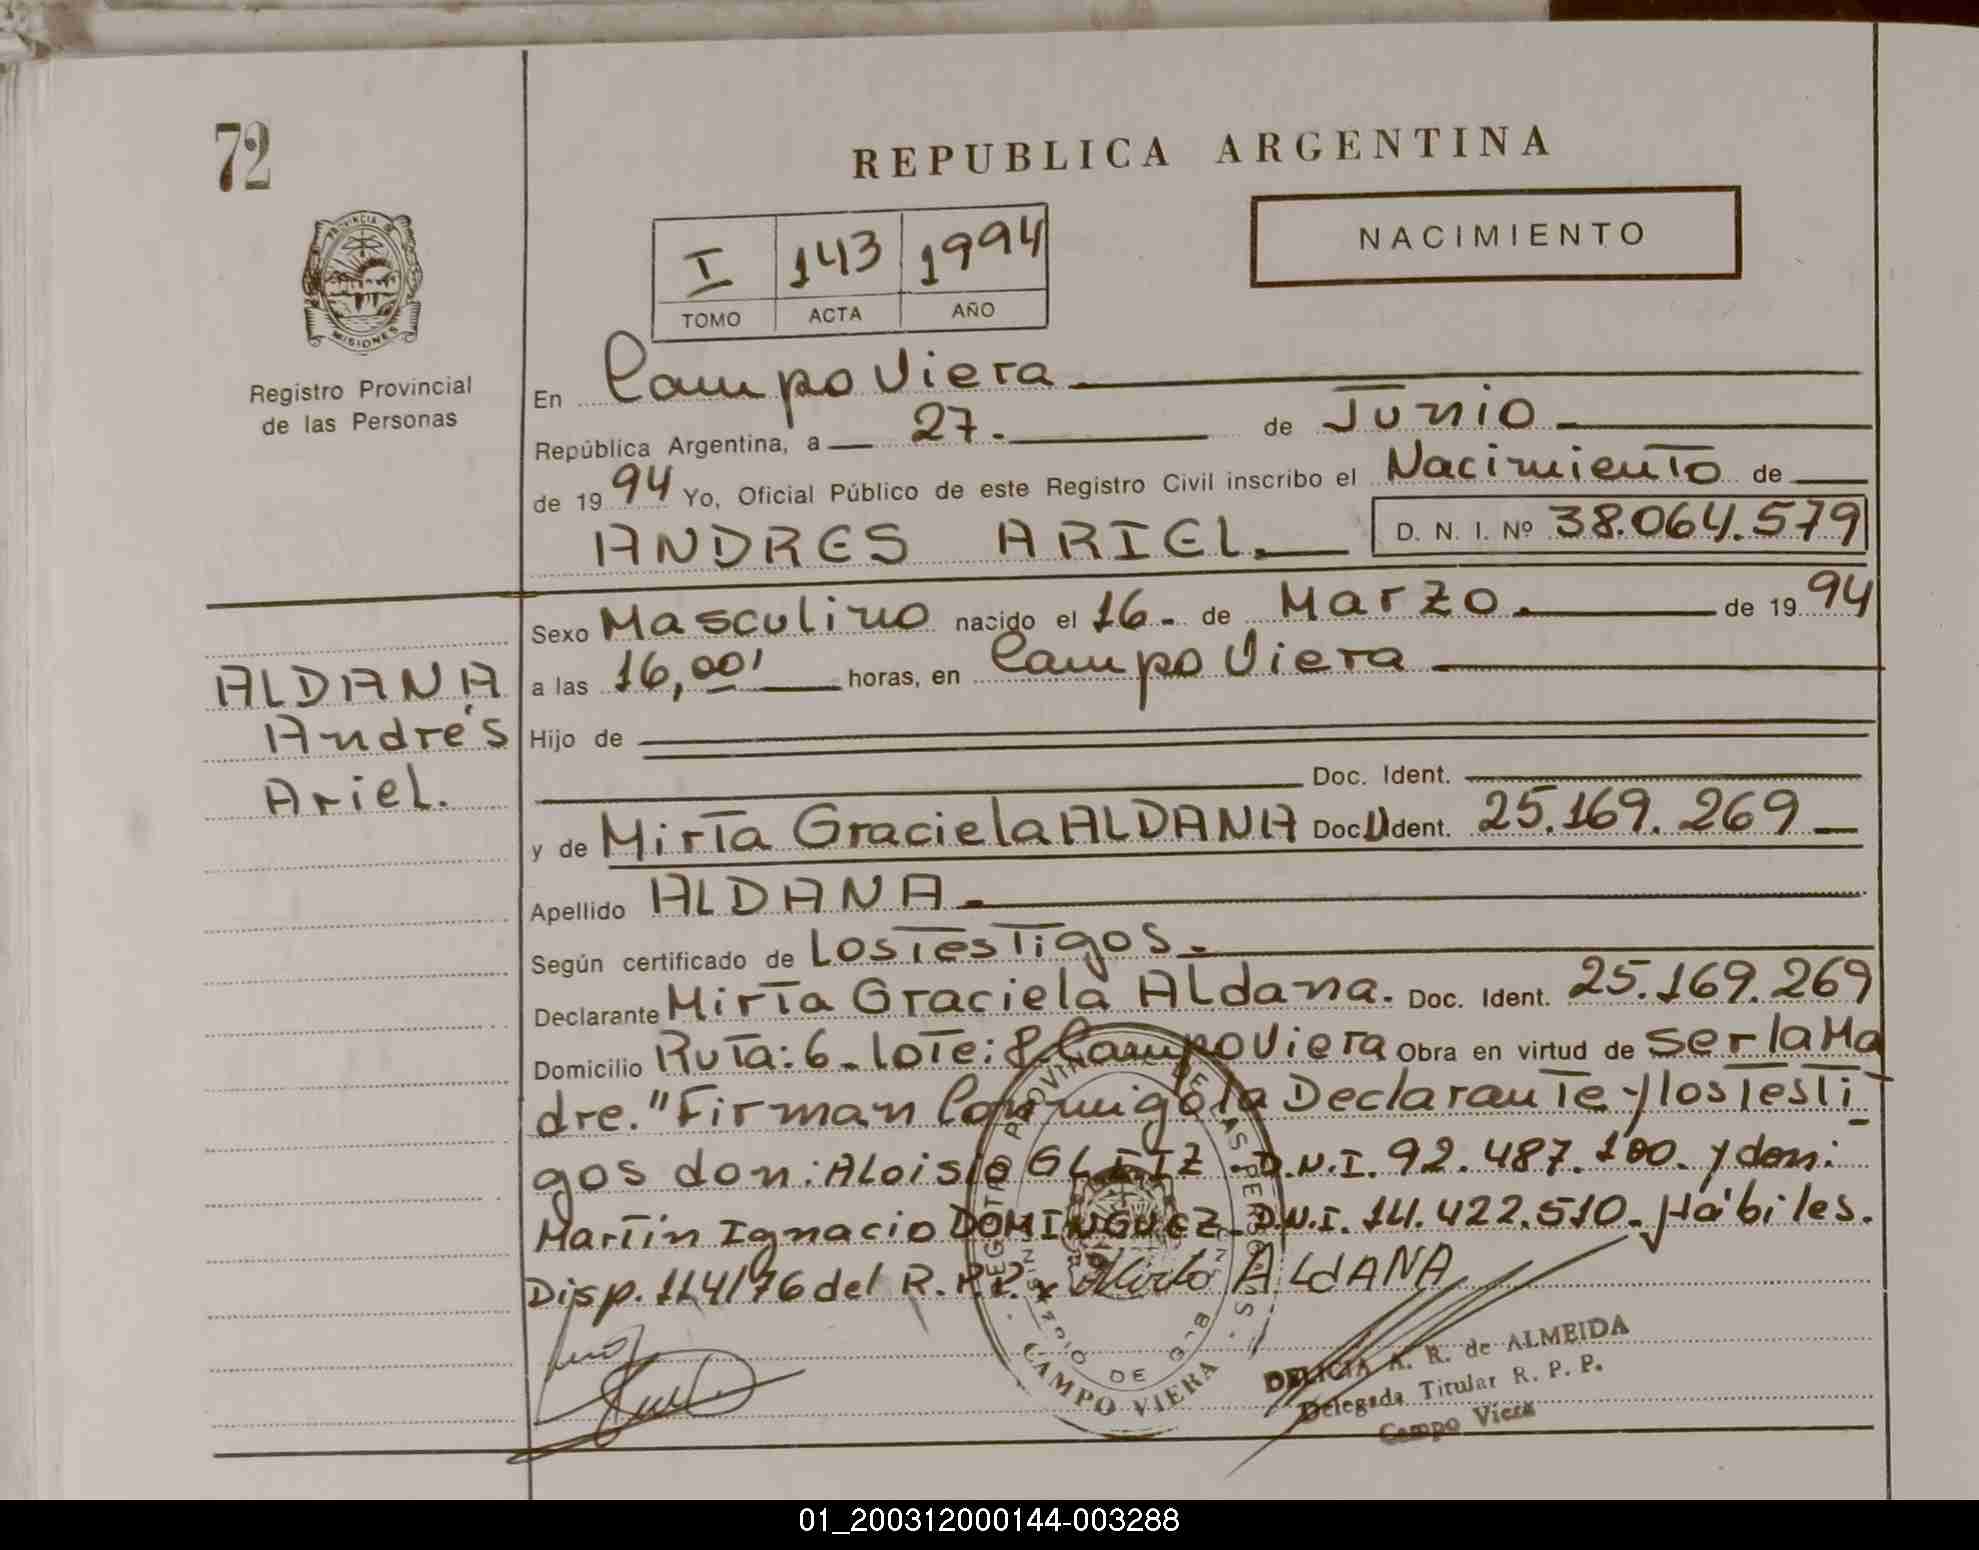 72
REPUBLICA ARGENTINA
NACIMIENTO
I 143 1994
TOMO ACTA AÑO
PROVINCIA DE MISIONES
Registro Provincial
de las Personas
En Campo Viera
República Argentina, a 27. de Junio
de 1994 Yo, Oficial Público de este Registro Civil inscribo el Nacimiento de
ANDRES ARIEL. D. N. I. Nº 38.064.579
Sexo Masculino nacido el 16- de Marzo. de 1994
a las 16,00' horas, en Campo Viera
ALDANA
Andrés
Ariel.
Hijo de
Doc. Ident.
y de Mirta Graciela ALDANA Doc. Ident. 25.169.269
Apellido ALDANA.
Según certificado de Los Testigos.
Declarante Mirta Graciela Aldana. Doc. Ident. 25.169.269
Domicilio Ruta: 6- lote: 8- Campo Viera Obra en virtud de ser la Ma
dre." Firman Conmigo la Declarante y los Testi
gos don: Aloisio D.N.I. 92.487.100. y don:
Martin Ignacio DOMINGUEZ- D.N.I. 14.422.510. Hábiles.
Disp. 114/76 del R.P.P. x Mirta ALdANA
REGISTRO PROVINCIAL DE LAS PERSONAS
MINISTERIO DE GOB
CAMPO VIERA
DELICIA A. R. de ALMEIDA
Delegada Titular R. P. P.
Campo Viera
01_200312000144-003288